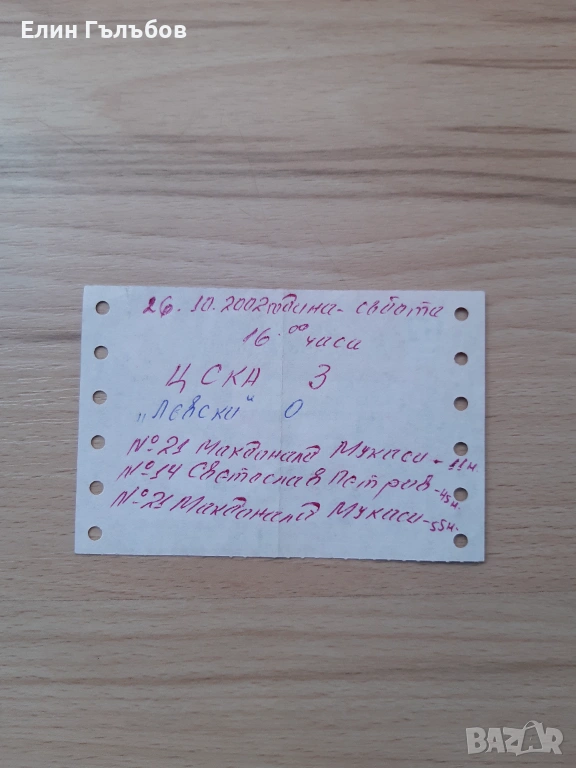 Елин Гълъбов
26.10.2002година - събота
16.⁰⁰ часа
ЦСКА 3
„Левски" 0
№21 Макдоналд Мукаси - 11м.
№14 Светослав Петров - 45м.
№21 Макдоналд Мукаси - 55м.
BAZAR